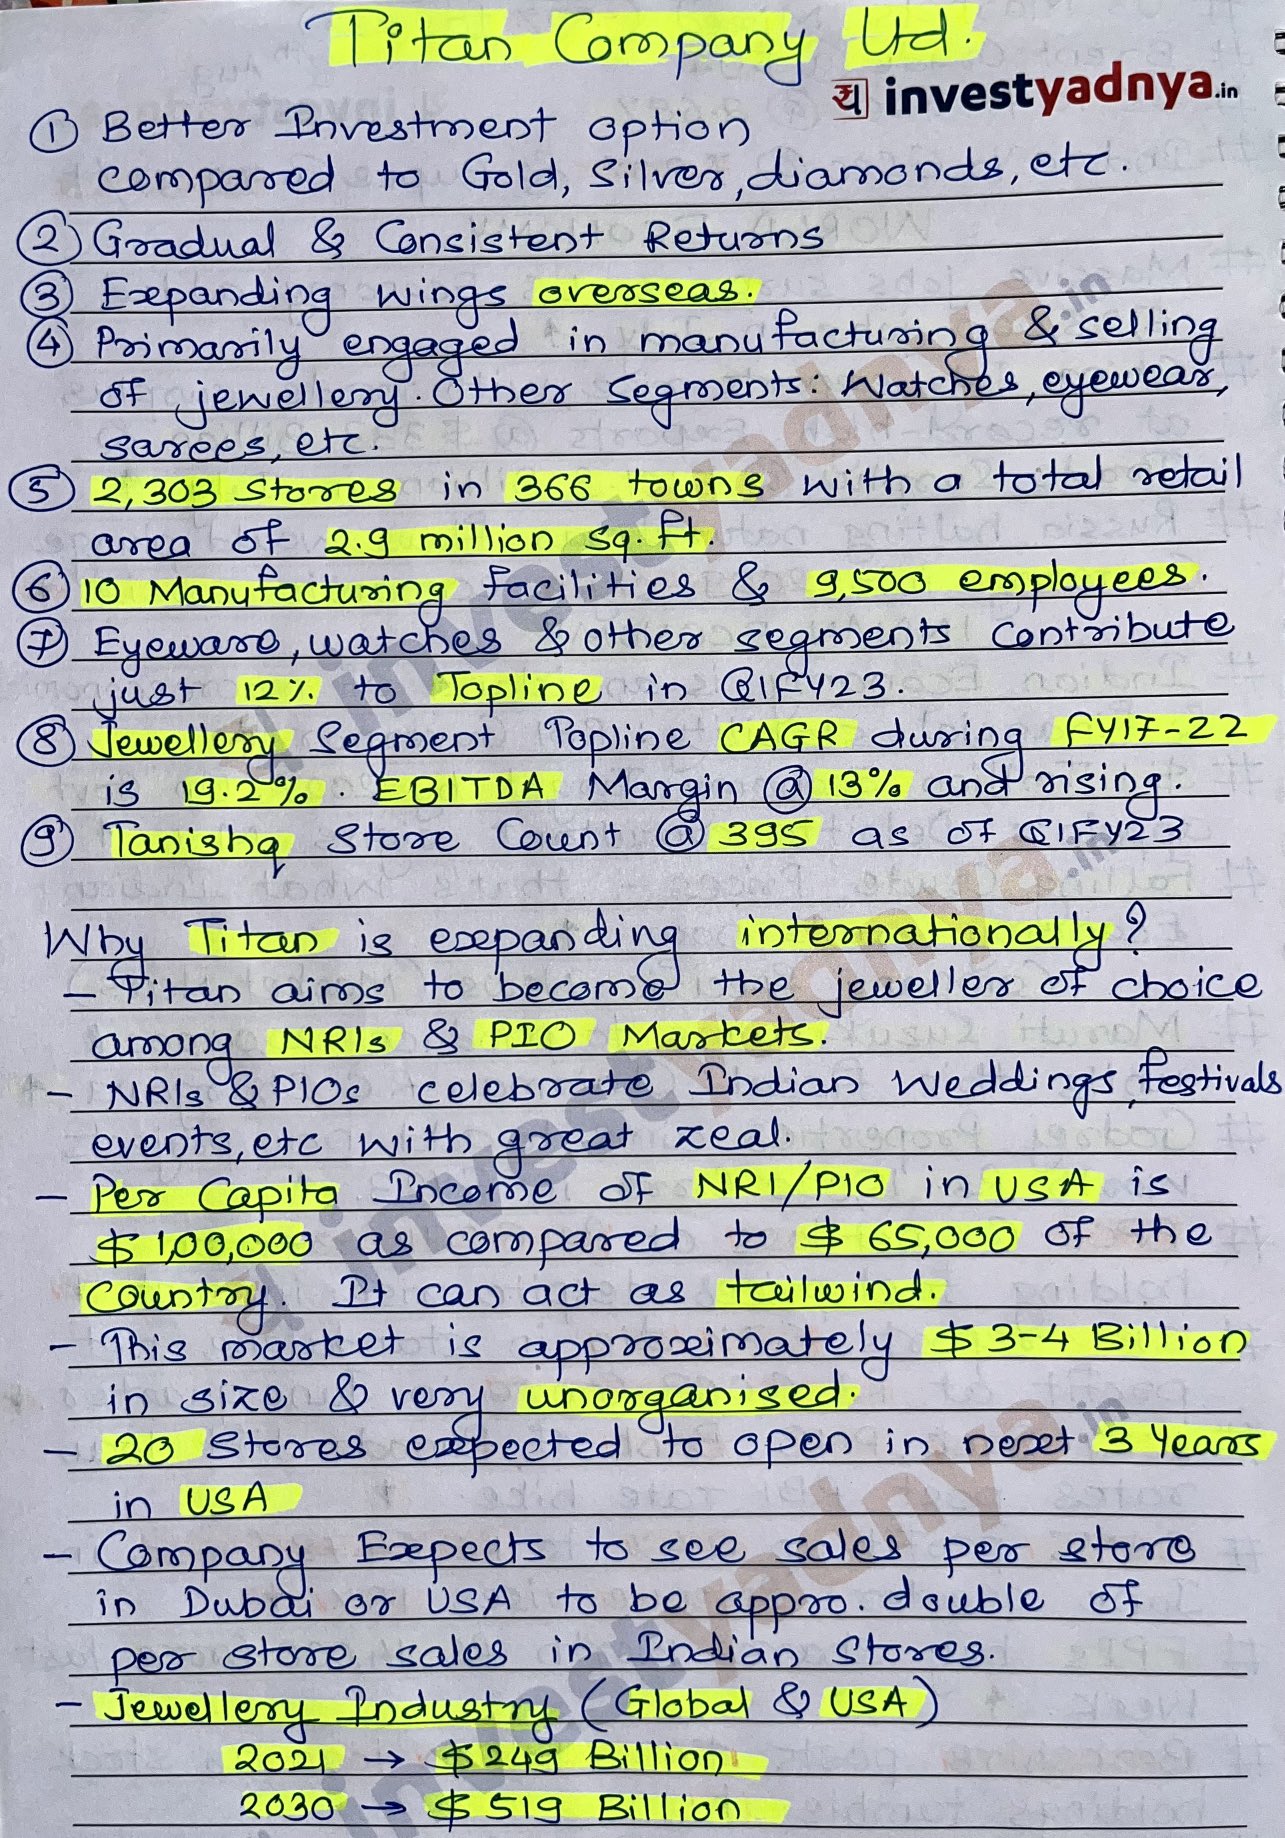 Titan Company Ltd.
investyadnya.in
① Better Investment option
compared to Gold, Silver, diamonds, etc.
② Gradual & Consistent Returns
③ Expanding wings overseas.
④ Primarily engaged in manufacturing & selling
of jewellery. Other Segments: Watches, eyewear,
sarees, etc.
⑤ 2,303 Stores in 366 towns with a total retail
area of 2.9 million sq. ft.
⑥ 10 Manufacturing facilities & 9,500 employees.
⑦ Eyeware, watches & other segments contribute
just 12% to Topline in Q1FY23.
⑧ Jewellery Segment Topline CAGR during FY17-22
is 19.2%. EBITDA Margin @ 13% and rising.
⑨ Tanishq Store Count @ 395 as of Q1FY23
Why Titan is expanding internationally?
- Titan aims to become the jeweller of choice
among NRIs & PIO Markets.
- NRIs & PIOs celebrate Indian Weddings, festivals
events, etc with great zeal.
- Per Capita Income of NRI/PIO in USA is
$ 1,00,000 as compared to $ 65,000 of the
Country. It can act as tailwind.
- This market is approximately $ 3-4 Billion
in size & very unorganised.
- 20 Stores expected to open in next 3 Years
in USA
- Company Expects to see sales per store
in Dubai or USA to be appro. double of
per store sales in Indian Stores.
- Jewellery Industry (Global & USA)
2021 → $ 249 Billion
2030 → $ 519 Billion